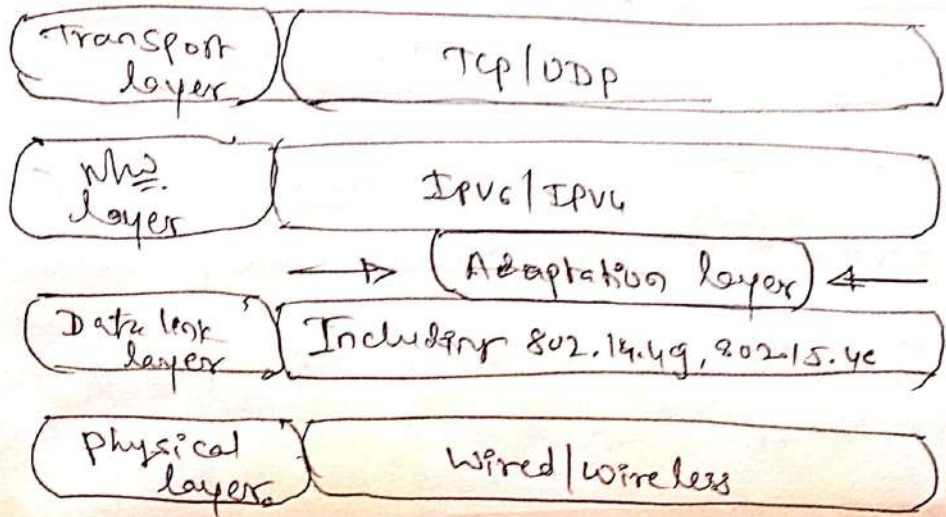 Transport
layer
TCP/UDP
N/w
layer
IPV6/IPV4
Adaptation layer
Data link
layer
Including 802.14.4g, 802.15.4e
physical
layer.
Wired/Wireless